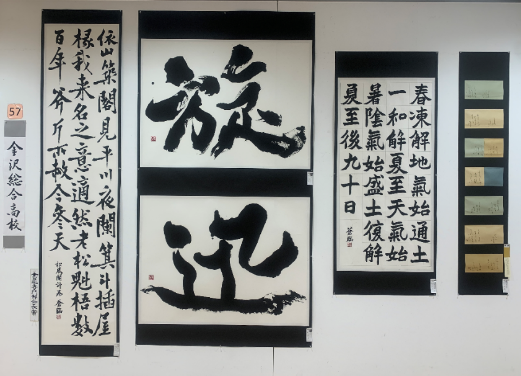 57
金沢総合高校
依山築閣見平川夜闌箕斗插屋
椽我来名之意適然老松魁梧數
百年斧斤所赦今參天
旋
迅
春凍解地氣始通土
一和解夏至天氣始
暑陰氣始盛土復解
夏至後九十日